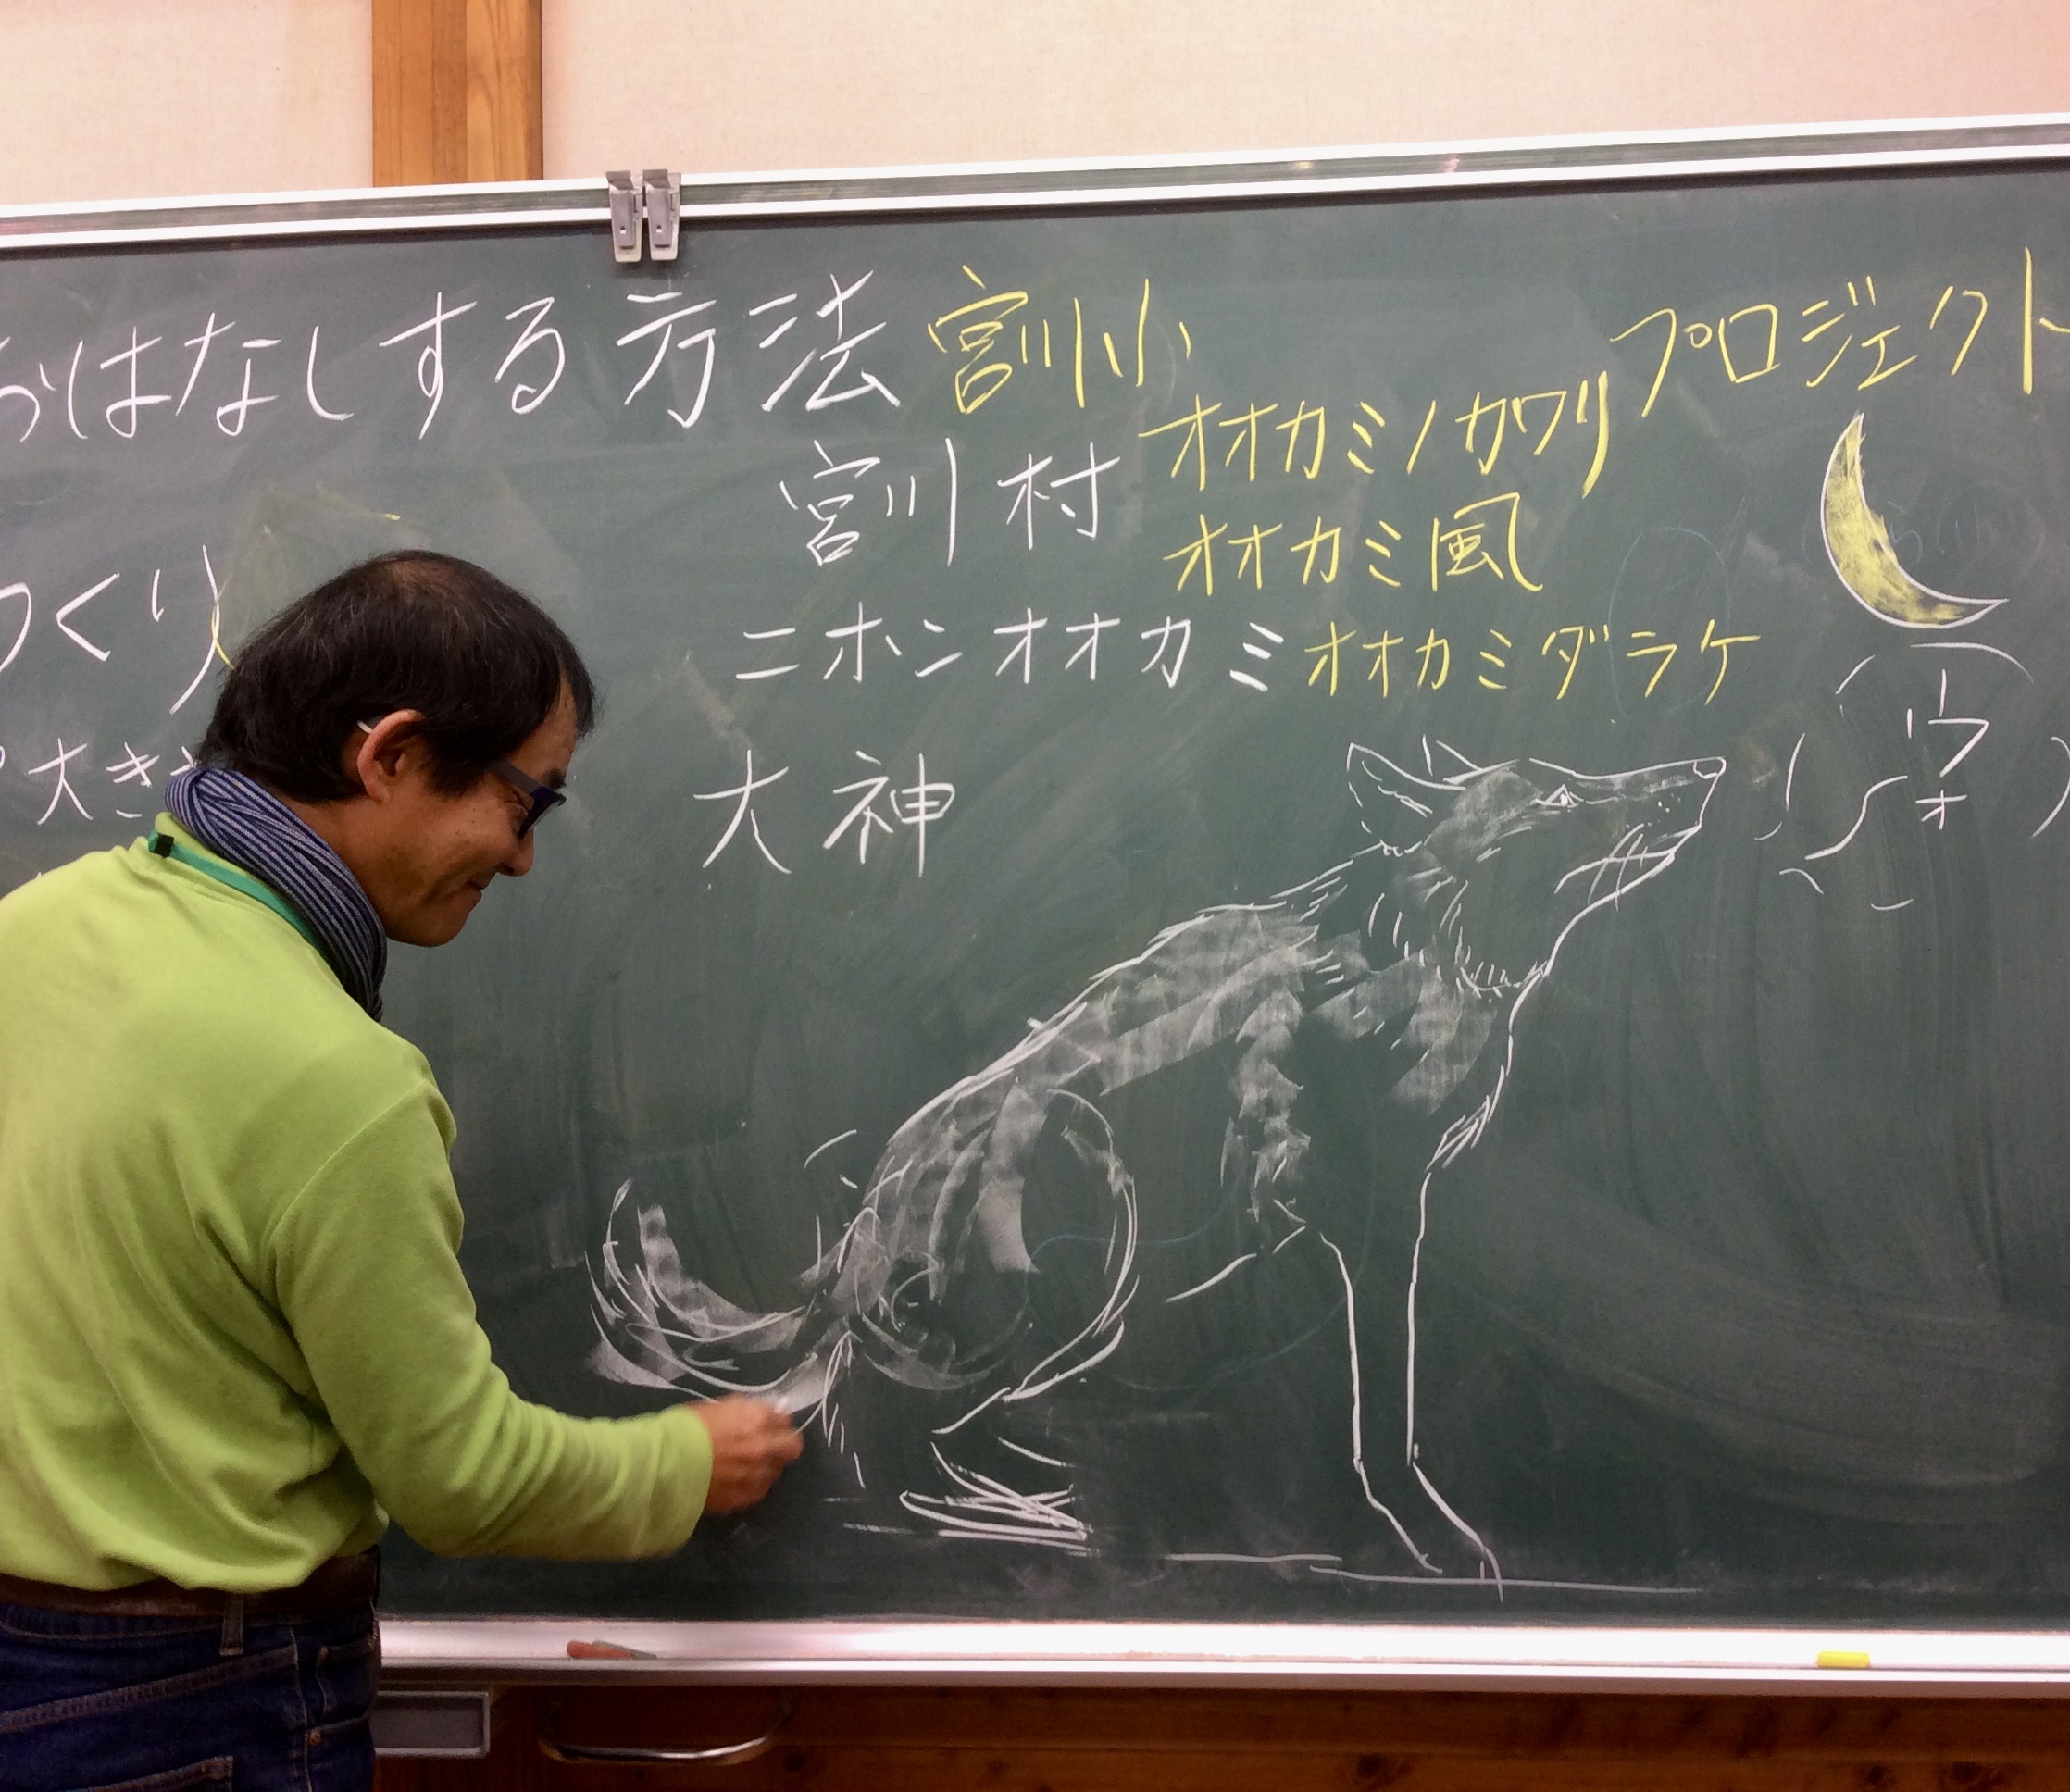 おはなしする方法
宮川小
プロジェクト
オオカミノカワリ
宮川村
オオカミ風
つくり
ニホンオオカミ
オオカミダラケ
大き
大神
ウオ